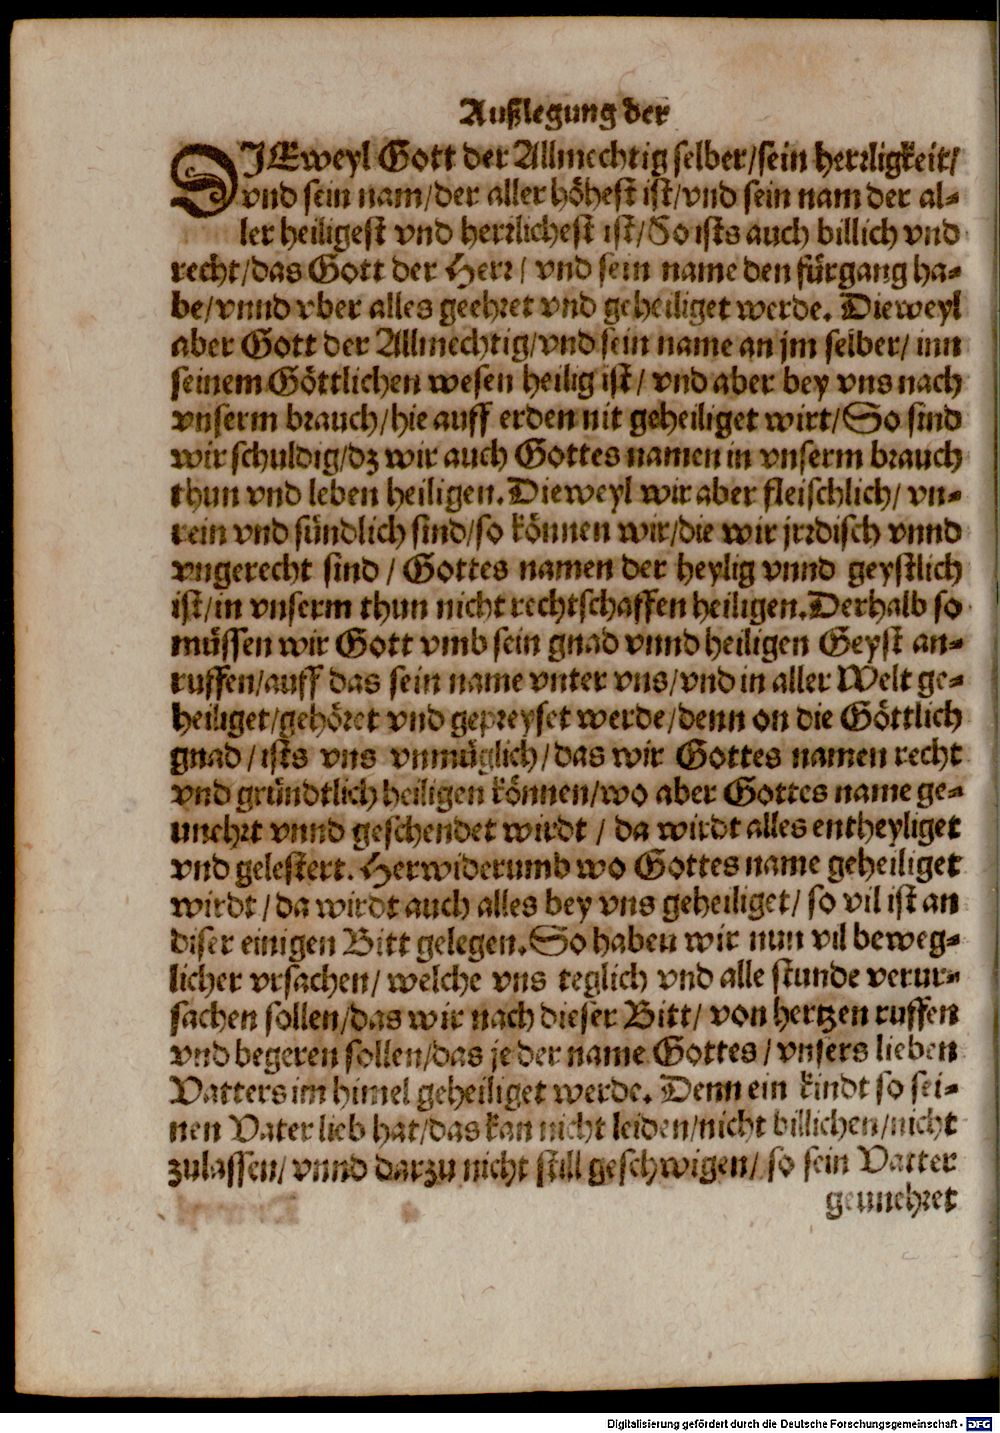 Außlegung der
DJEweyl Gott der Allmechtig selber/sein herrligkeit/
vnd sein nam/der aller höhest ist/vnd sein nam der al-
ler heiligest vnd herrlichest ist/So ists auch billich vnd
recht/das Gott der Herr/ vnd sein name den fürgang ha-
be/vnnd vber alles geehret vnd geheiliget werde. Dieweyl
aber Gott der Allmechtig/vnd sein name an jm selber/ inn
seinem Göttlichen wesen heilig ist/ vnd aber bey vns nach
vnserm brauch/hie auff erden nit geheiliget wirt/So sind
wir schuldig/dz wir auch Gottes namen in vnserm brauch
thun vnd leben heiligen. Dieweyl wir aber fleischlich/ vn-
rein vnd sündlich sind/so können wir/die wir jrrdisch vnnd
vngerecht sind / Gottes namen der heylig vnnd geystlich
ist/in vnserm thun nicht rechtschaffen heiligen. Derhalb so
müssen wir Gott vmb sein gnad vnnd heiligen Geyst an-
ruffen/auff das sein name vnter vns/vnd in aller Welt ge-
heiliget/gehöret vnd gepreyset werde/denn on die Göttlich
gnad /ists vns vnmüglich/das wir Gottes namen recht
vnd gründtlich heiligen können/wo aber Gottes name ge-
unehrt vnnd geschendet wirdt / da wirdt alles entheyliget
vnd gelestert. Herwiderumb wo Gottes name geheiliget
wirdt / da wirdt auch alles bey vns geheiliget/ so vil ist an
diser einigen Bitt gelegen. So haben wir nun vil beweg-
licher vrsachen/ welche vns teglich vnd alle stunde verur-
sachen sollen/das wir nach dieser Bitt/ von hertzen ruffen
vnd begeren sollen/das je der name Gottes / vnsers lieben
Vatters im himel geheiliget werde. Denn ein kindt so sei-
nen Vater lieb hat/das kan nicht leiden/nicht billichen/nicht
zulassen/ vnnd darzu nicht still geschwigen/ so sein Vatter
geunehret
Digitalisierung gefördert durch die Deutsche Forschungsgemeinschaft - DFG